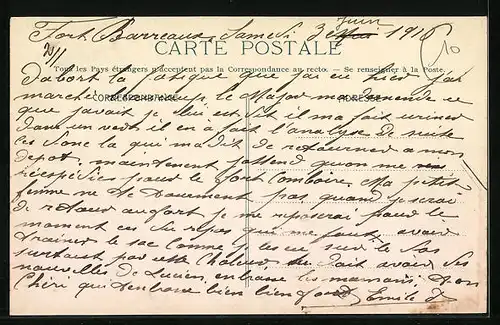 Fort Barreaux, Samedi 3 Juin 1916
CARTE POSTALE
Tous les Pays étrangers n'acceptent pas la Correspondance au recto. — Se renseigner à la Poste.
CORRESPONDANCE
ADRESSE
Dabort la fatigue que jai eu hier jai
marché le Major ma demandé ce
que javait je lui est dit il ma fait uriner
dans un vert il en a fait l'analyse de suite
ces donc la qui ma dit de retourner a mon
depot, maintenant jattend quon me
réexpédies pour le fort Comboire, Ma petite
femme ne te tourment pas quand je serai
de retour au fort je me reposerai pour le
moment ces du repos qui me faut, avoir
trainer le sac comme je les eu sur le dos
surtout par cette chaleur, on doit avoir des
nouvelles de Lucien, embrasse les mamans, ton
Chéri qui t'embrasse bien bien fort Emile